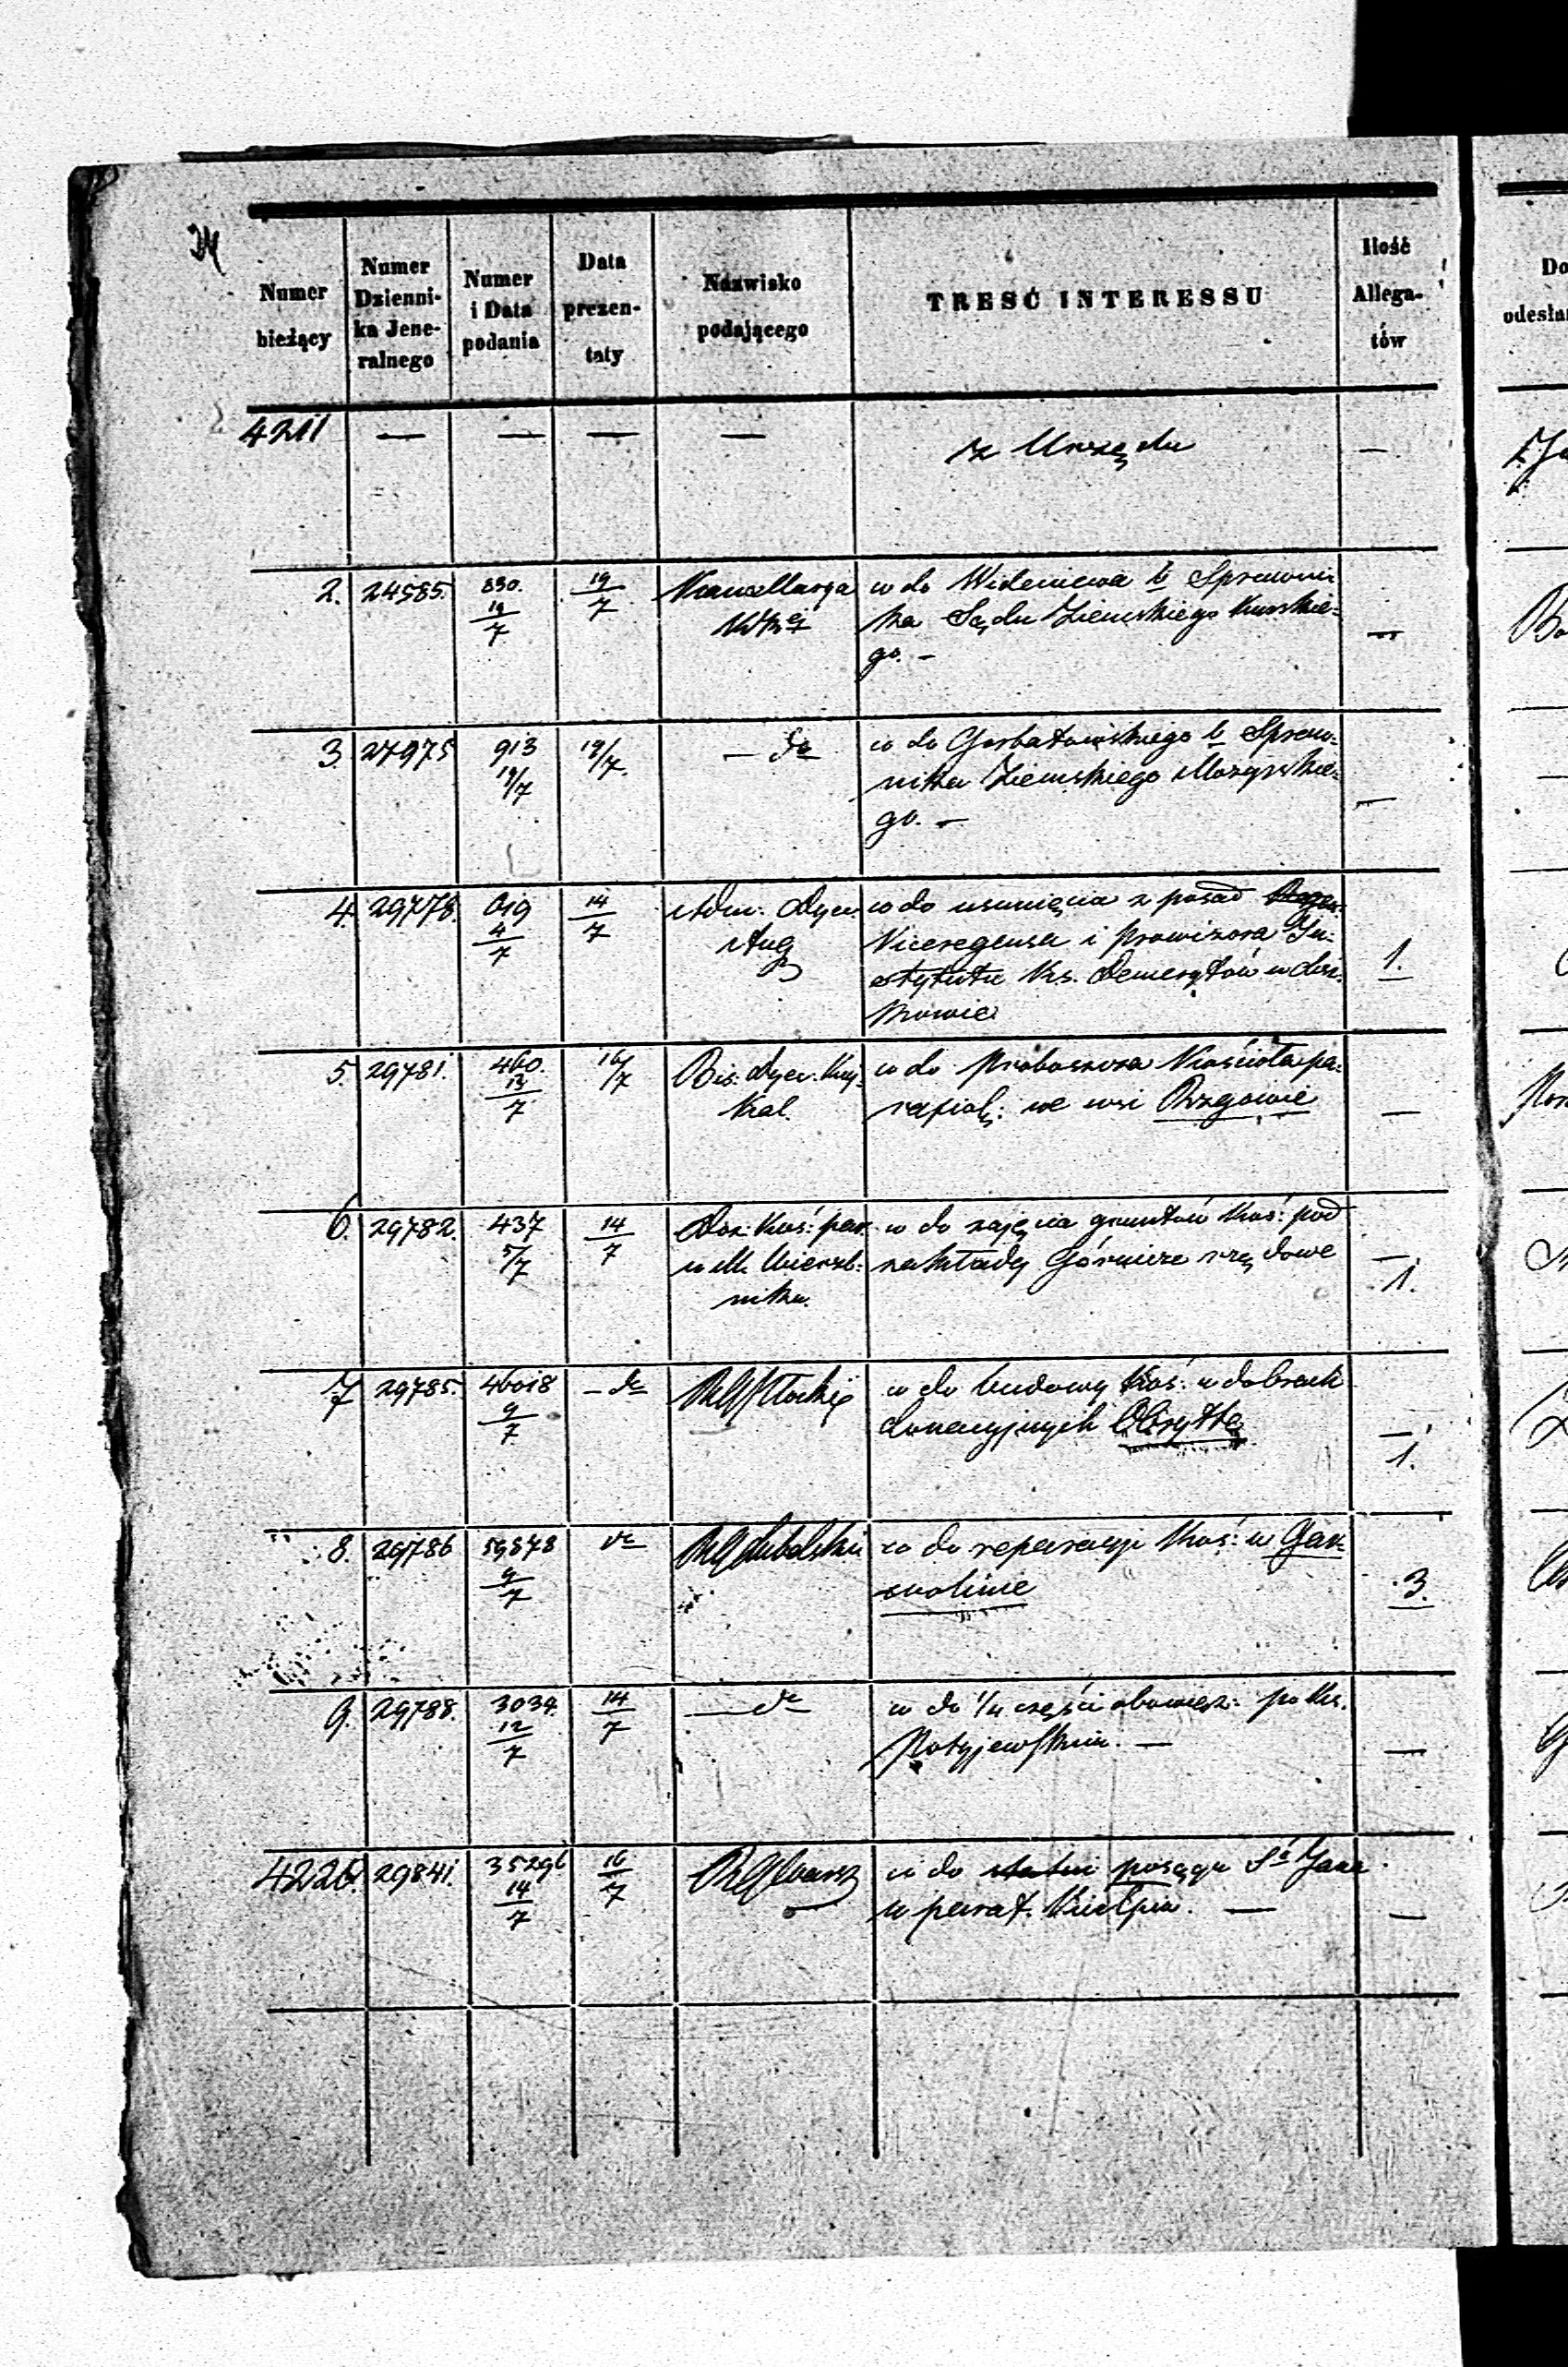 Numer bieżący | Numer Dzienni-ka Jene-ralnego | Numer i Data podania | Data prezen-taty | Nazwisko podającego | TREŚĆ INTERESSU | Ilość Allega-tów
4211 — — — — z Urzędu —
2. 24585. 890. 19/7 19/7 Kancellarya w do b Sprawni-
ka Sądu Ziemskiego Kurskie-
go. — —
3. 27975 913 19/7 19/7. — do w do Gorbatowskiego b Spraw-
nika Ziemskiego Mozyrskie-
go. — —
4. 29778. 619 4/7 14/7 Adm: Dyec. w do usunięcia z posad
Aug Viceregensa i Prowizora In-
stytutu Ks. Demerytów w 1.
5. 29781. 460. 12/7 16/7 Bis: Dyec. Kuj- w do Proboszcza Kościoła pa-
Kal. rafial: we wsi Rzgowie —
6. 29782. 437 5/7 14/7 Doz: Koś: par. w do zajęcia gruntów Koś: pod
w M. Wierzb- zakłady Górnicze rządowe — 1.
niku.
7 29785. 46018 9/7 — do RG Płockiej w do budowy Koś: w dobrach
donacyjnych Obrytte — 1.
8. 29786 59878 9/7 do RG Lubelski w do reperacyi Koś: w Gar-
wolinie 3.
9. 29788. 3034. 12/7 14/7 — do w do 1/4 części obowiąz: po Ks.
—
4220. 29841. 35296 14/7 16/7 RG Warsz w do statui posągu Sº Jana
w paraf. Kiełpin. — —